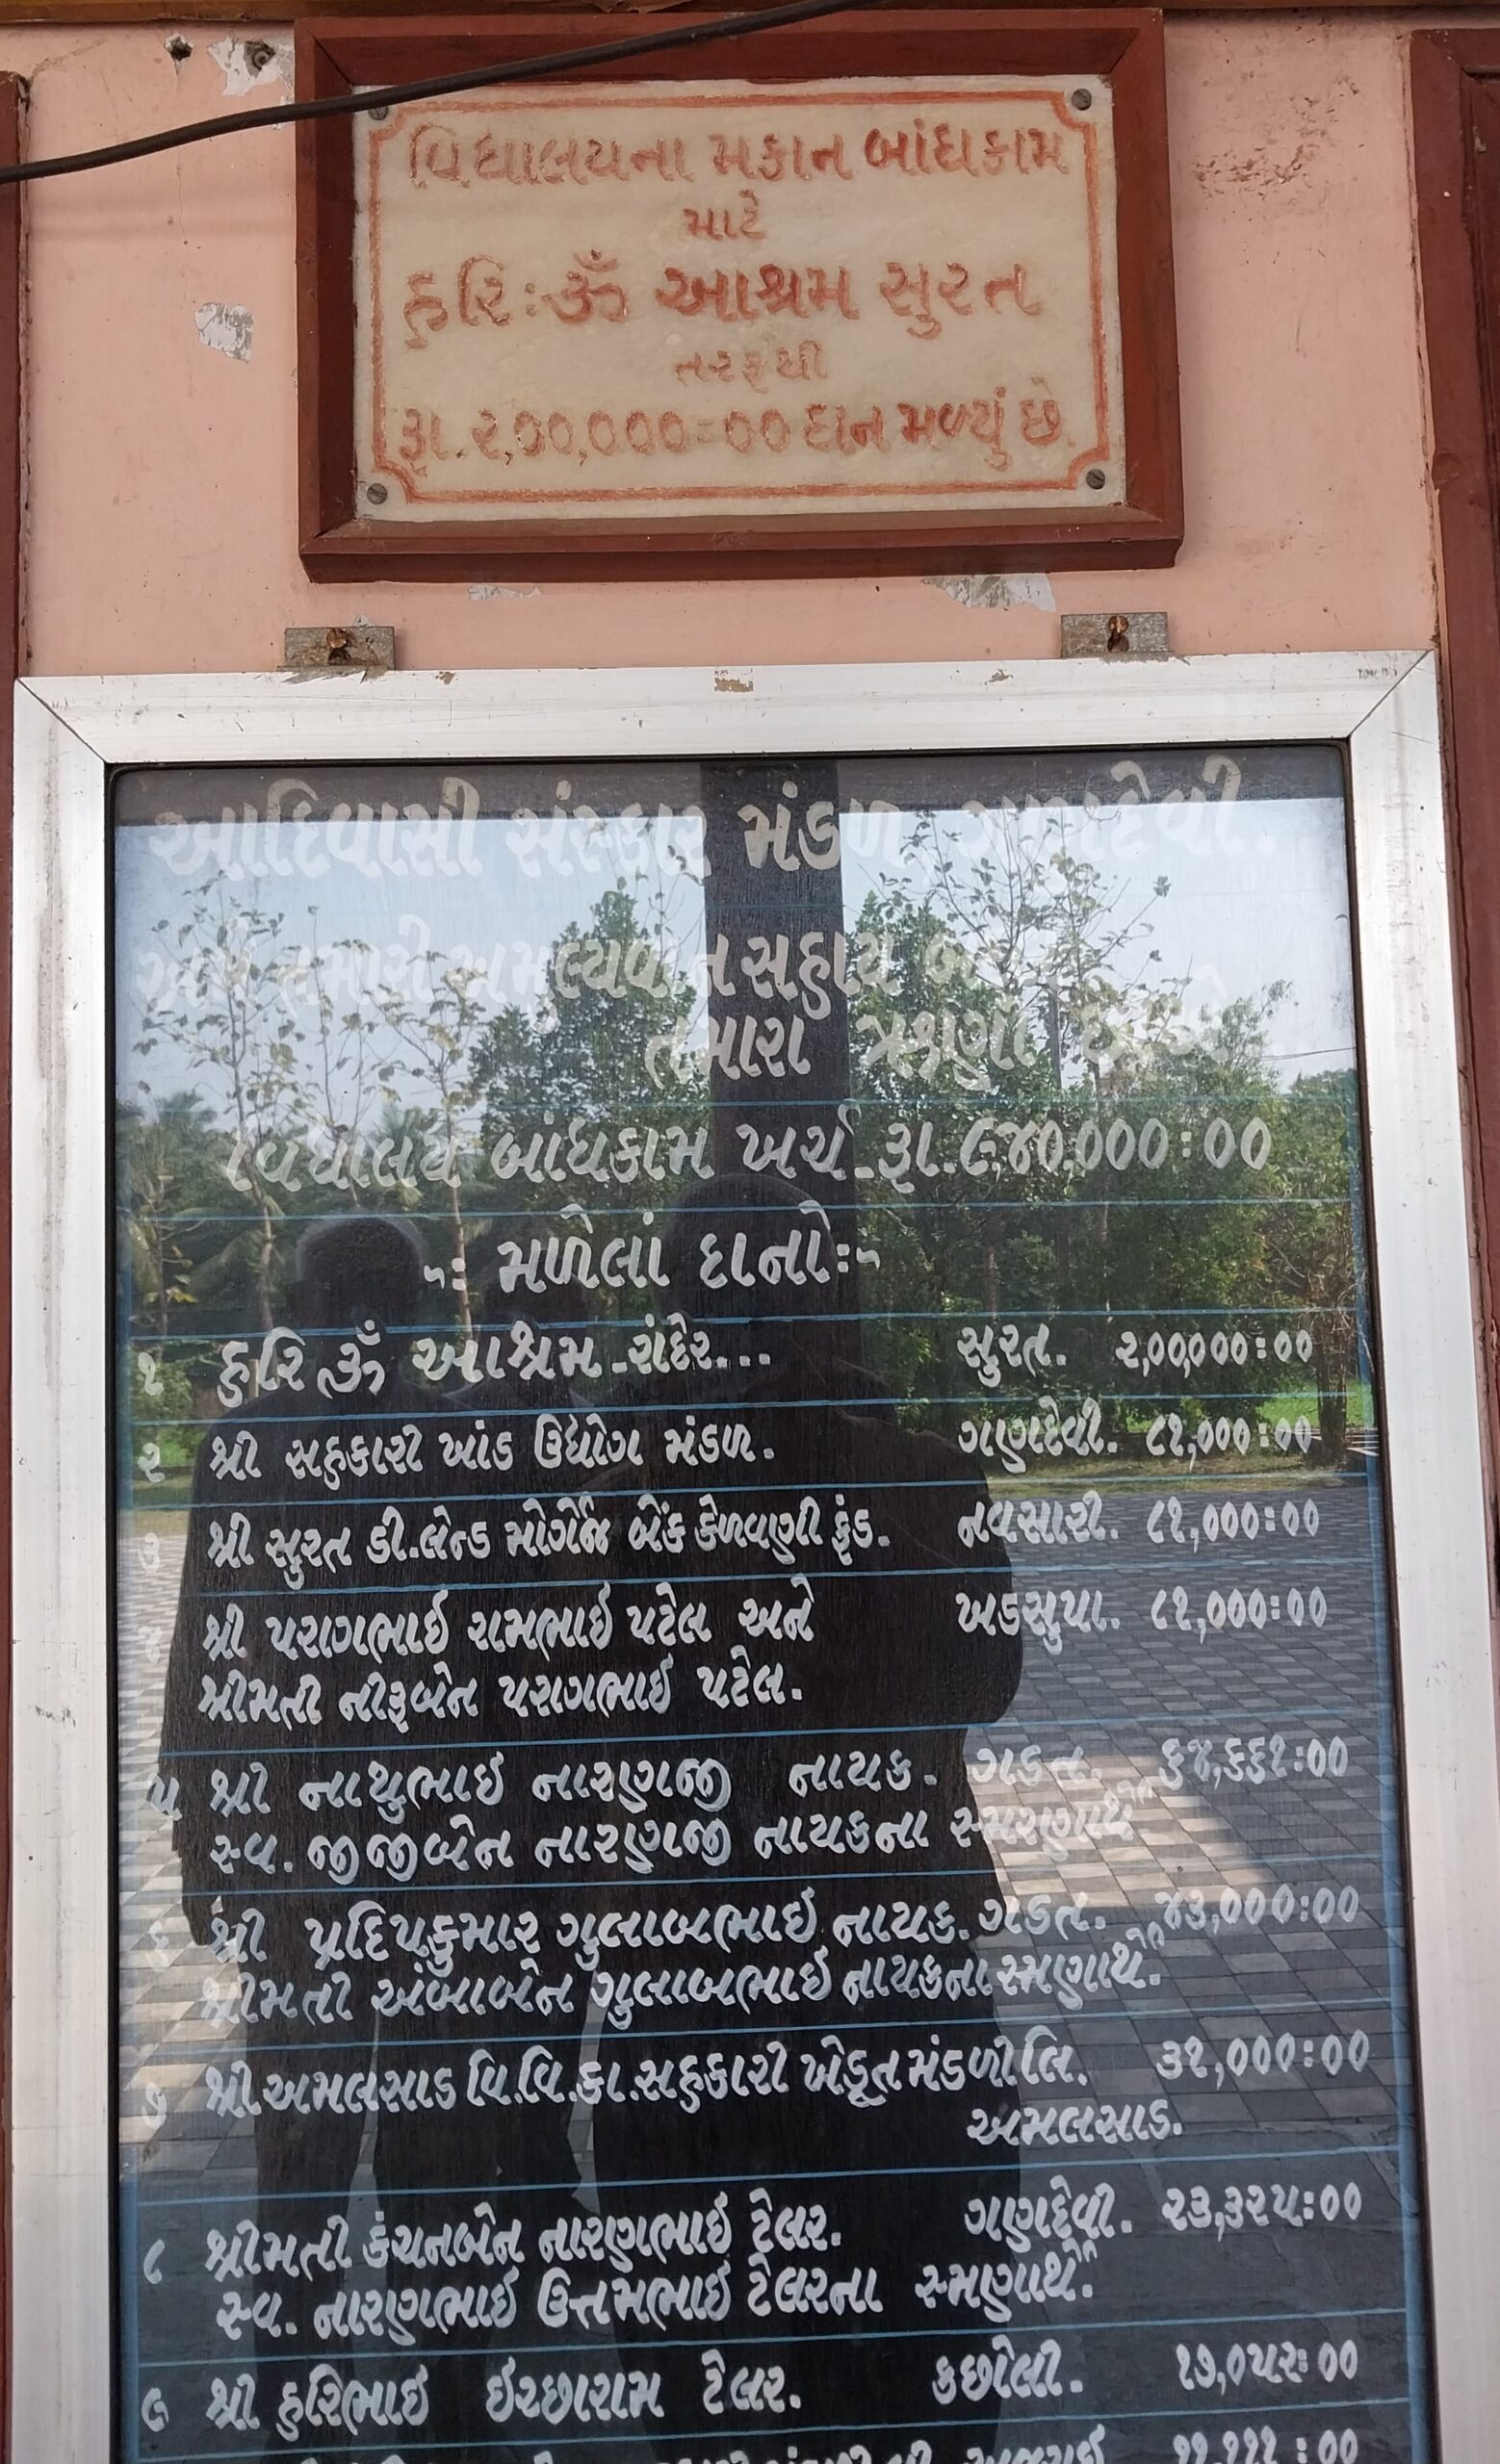 વિદ્યાલયના મકાન બાંધકામ
માટે
હરિ:ૐ આશ્રમ સુરત
તરફથી
રૂા.૨,૦૦,૦૦૦=૦૦ દાન મળ્યું છે.
આદિવાસી સંસ્કાર મંડળ ગણદેવી.
તમારી અમુલ્યવાન સહાય
તમારા
વિદ્યાલય બાંધકામ ખર્ચ-રૂા.૯,૪૦,૦૦૦:૦૦
-: મળેલાં દાનો:-
૧ હરિ ૐ આશ્રમ-રાંદેર... સુરત. ૨,૦૦,૦૦૦:૦૦
૨ શ્રી સહકારી ખાંડ ઉદ્યોગ મંડળ. ગણદેવી. ૮૧,૦૦૦:૦૦
૩ શ્રી સુરત ડી.લેન્ડ મોર્ગેજ બેંક કેળવણી ફંડ. નવસારી. ૮૧,૦૦૦:૦૦
૪ શ્રી પરાગભાઈ રામભાઈ પટેલ અને ખડસુપા. ૮૧,૦૦૦:૦૦
શ્રીમતી નીરૂબેન પરાગભાઈ પટેલ.
૫ શ્રી નાથુભાઈ નારણજી નાયક. ગડત. ૬૪,૬૬૧:૦૦
સ્વ. જીજીબેન નારણજી નાયકના સ્મરણાર્થે
૬ શ્રી પ્રદિપકુમાર ગુલાબભાઈ નાયક. ગડત. ૪૩,૦૦૦:૦૦
શ્રીમતી અંબાબેન ગુલાબભાઈ નાયકના સ્મણાર્થે.
૭ શ્રી અમલસાડ વિ.વિ.કા.સહકારી ખેડૂત મંડળી લિ. ૩૧,૦૦૦:૦૦
અમલસાડ.
૮ શ્રીમતી કંચનબેન નારણભાઈ ટેલર. ગણદેવી. ૨૩,૩૨૫:૦૦
સ્વ. નારણભાઈ ઉત્તમભાઈ ટેલરના સ્મણાર્થે.
૯ શ્રી હરિભાઈ ઈચ્છારામ ટેલર. કછોલી. ૧૭,૦૫૨:૦૦
૧૧,૧૧૧:૦૦